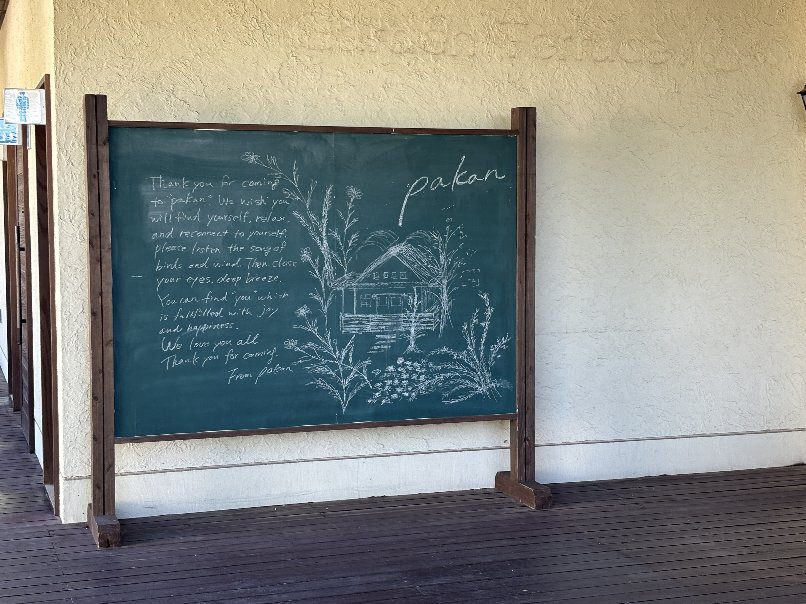 Garden Terrace
pakan
Thank you for coming
to "pakan". We wish you
will find yourself, relax,
and reconnect to yourself,
please listen the song of
birds and wind. Then close
your eyes. deep breeze.
You can find you which
is fulfilled with joy
and happiness.
We love you all
Thank you for coming.
From pakan